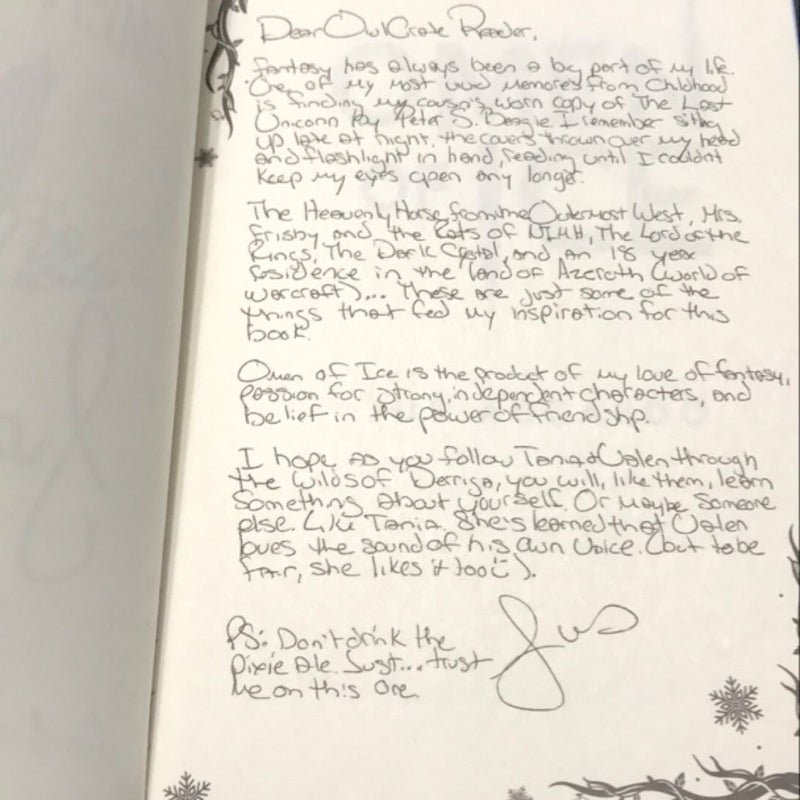 Dear OwlCrate Reader,
Fantasy has always been a big part of my life.
One of my most vivid memories from Childhood
is finding my cousin's worn copy of The Last
Unicorn by Peter S. Beagle. I remember sitting
up late at night, the covers thrown over my head
and flashlight in hand, reading until I couldn't
keep my eyes open any longer.
The Heavenly Horse from the Outermost West, Mrs.
Frisby and the Rats of NIMH, The Lord of the
Rings, The Dark Crystal, and an 18 year
residence in the land of Azeroth (World of
Warcraft)... These are just some of the
things that fed my inspiration for this
book.
Queen of Ice is the product of my love of fantasy,
passion for strong, independent characters, and
belief in the power of friendship.
I hope as you follow Tania &
through
the wilds of Derriga, you will, like them, learn
something about yourself. Or maybe someone
else. Like Tania. She's learned that
loves the sound of his own voice. (but to be
fair, she likes it too :) ).
PS: Don't drink the
Pixie Ale. Just... trust
me on this one